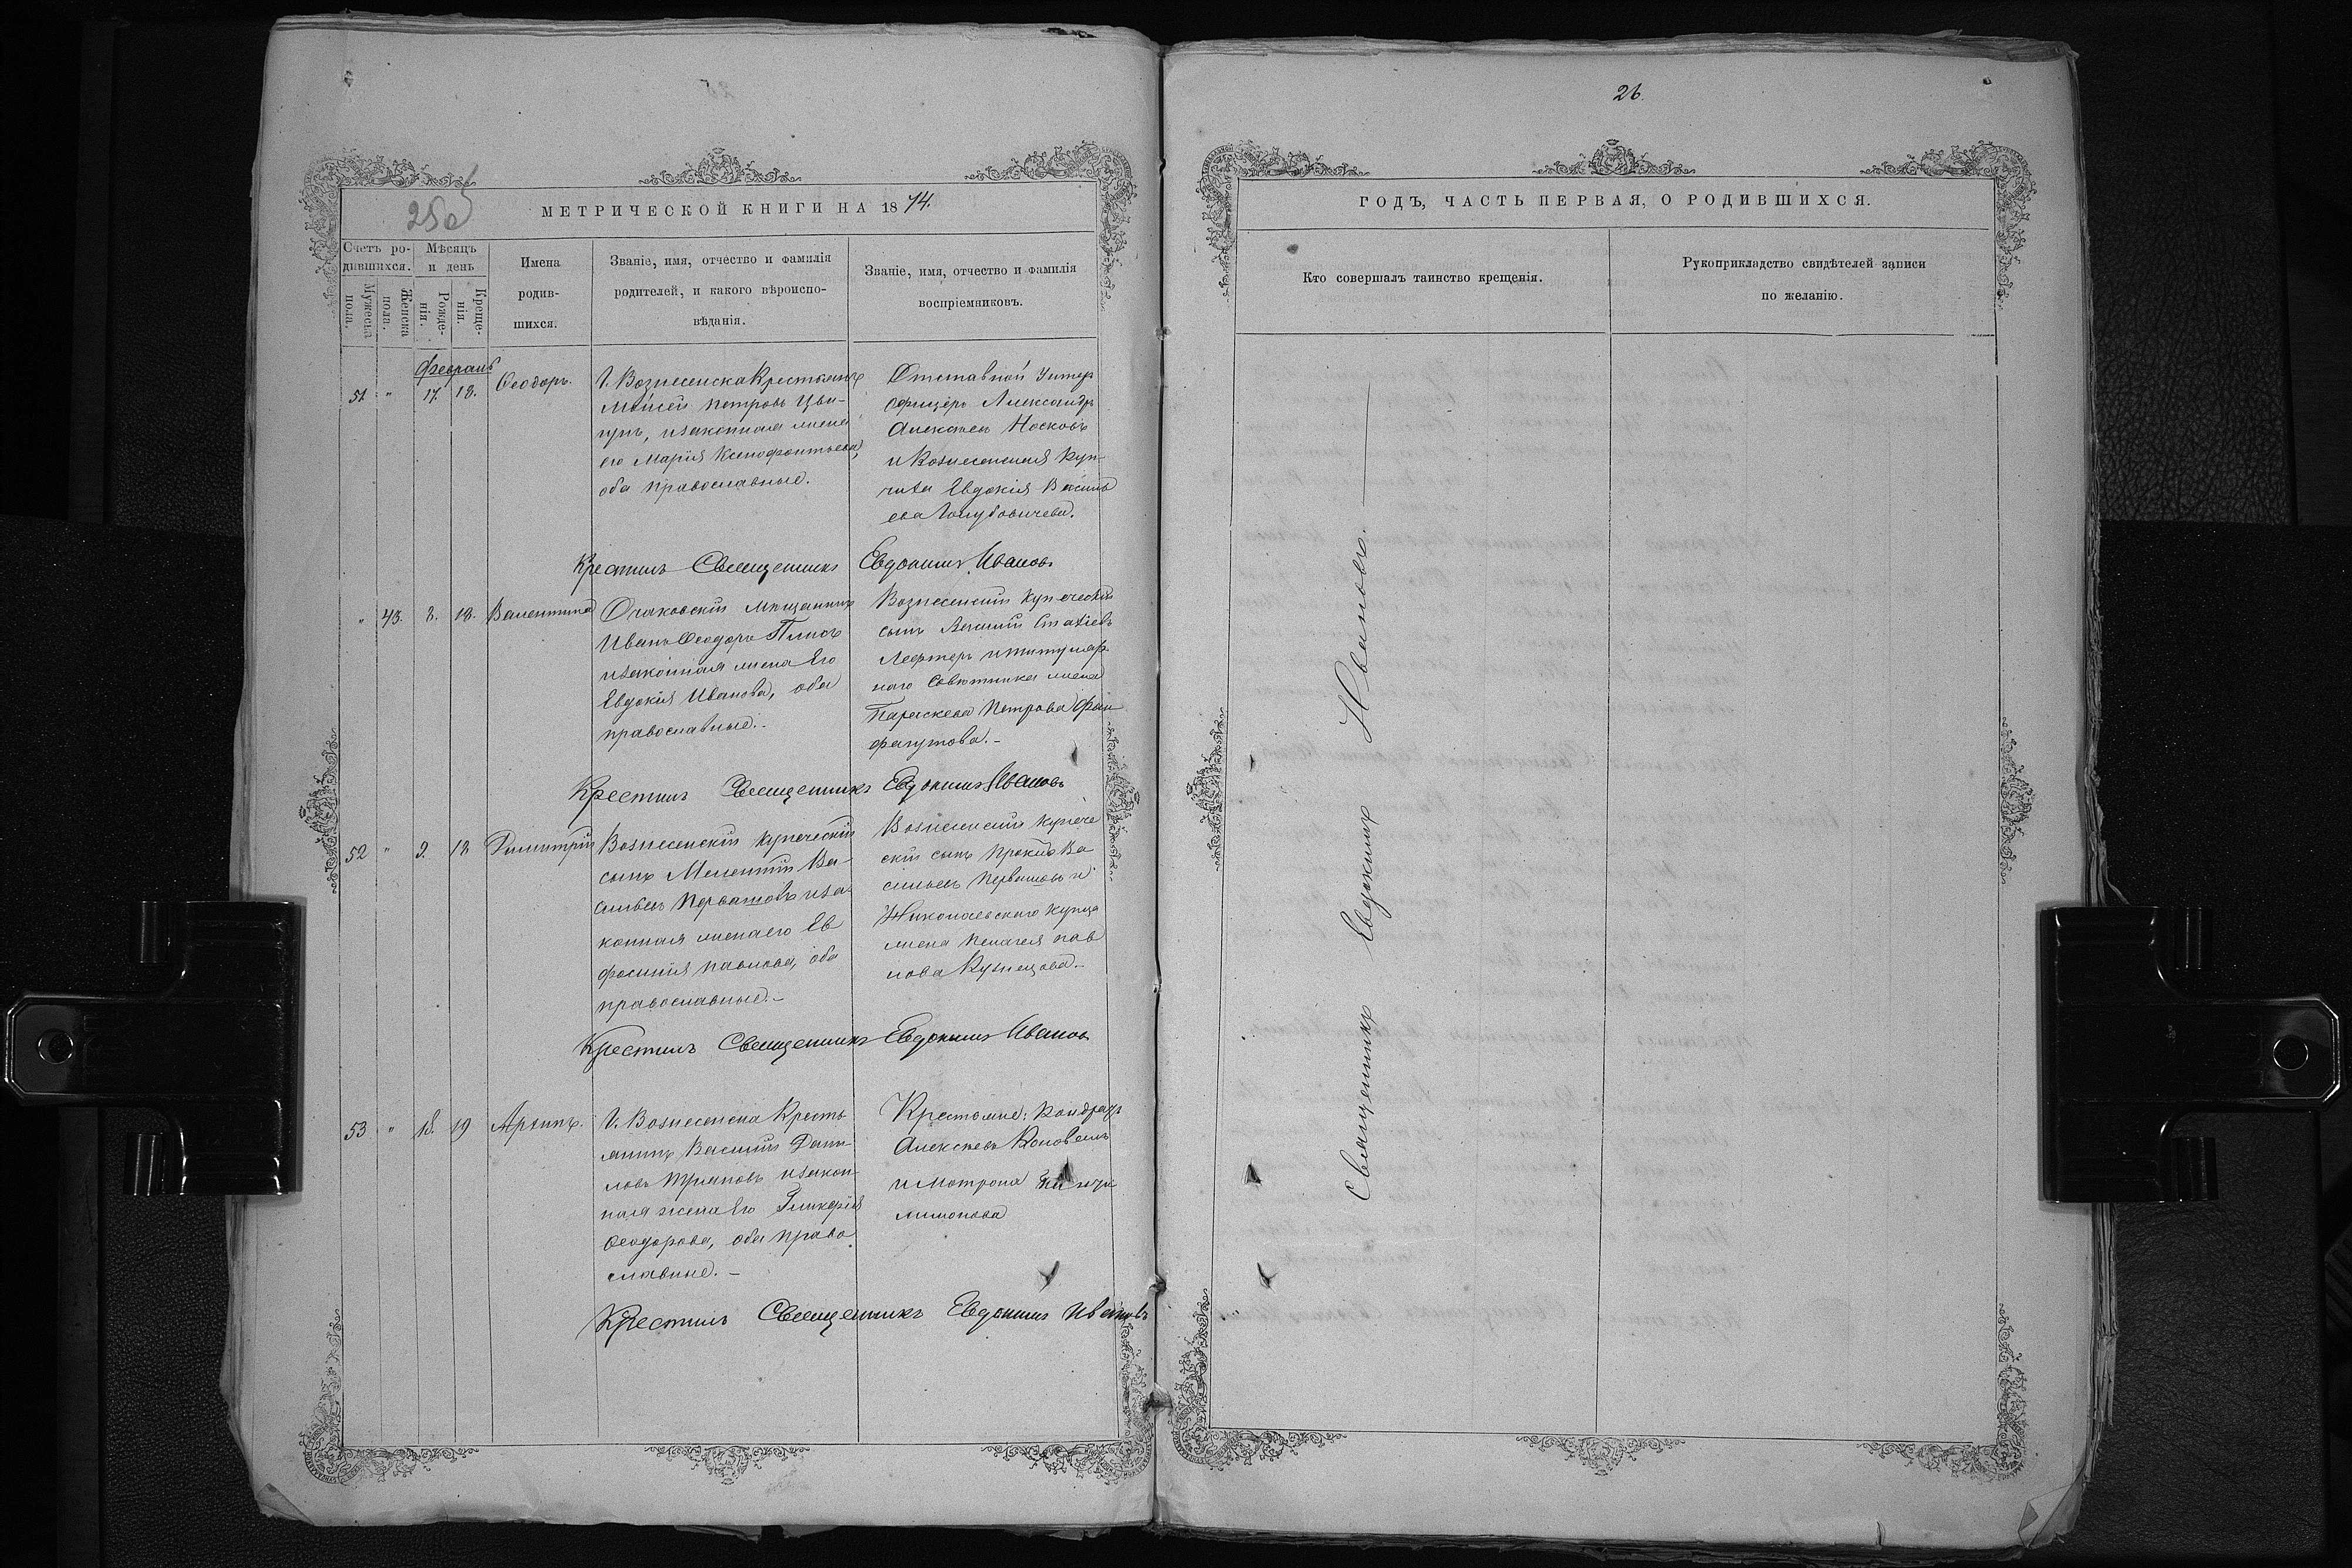 26.
25об
МЕТРИЧЕСКОЙ КНИГИ НА 1874.
Счетъ родившихся.
Мѣсяцъ и день
Имена родившихся.
Званіе, имя, отчество и фамилія родителей, и какого вѣроисповѣданія.
Званіе, имя, отчество и фамилія воспріемниковъ.
Мужеска пола.
Женска пола.
Рожденія.
Крещенія.
Февраль
51 " 17. 18. Ѳеодоръ.
Г. Вознесенска Крестьянъ
Моисей Петровъ Цвигунъ, и законная жена
его Марія Ксенофонтьева,
оба православные.
Отставной Унтер
офицеръ Александръ
Алексѣевъ Носковъ
и Вознесенская Купчиха Евдокія Василь
ева Голубовичева.
Крестилъ Священникъ Евдокимъ Ивановъ
" 43. 8. 18. Валентина
Очаковскій мѣщанинъ
Иванъ Ѳеодоръ
и законная жена Его
Евдокія Иванова, оба
православные.
Вознесенскій купеческій
сынъ
и титуляр
наго Совѣтника жена
Параскева Петрова
Крестилъ Священникъ Евдокимъ Ивановъ
52 " 9. 18 Димитрій
Вознесенскій купеческій
сынъ Мелентій Васильевъ Первашовъ и законная жена его Ев
фосинія Павлова, оба
православные.
Вознесенскій купече
скій сынъ Прокпъ Ва
сильевъ Первашовъ и
Николаевскаго купца
жена Пелагея Пав
лова Кузнецова.
Крестилъ Священникъ Евдокимъ Ивановъ
53 " 18. 19 Архипъ.
Г. Вознесенска Кресть
янинъ Василій Данилов и законная жена Его Гликерія
Ѳеодорова, оба право
славные.
Крестьяне: Кондратъ
Алексѣевъ Коновалъ
и Мотрона
Крестилъ Священникъ Евдокимъ Ивановъ
ГОДЪ, ЧАСТЬ ПЕРВАЯ, О РОДИВШИХСЯ.
Кто совершалъ таинство крещенія.
Рукоприкладство свидѣтелей записи
по желанію.
Священникъ Евдокимъ Ивановъ.